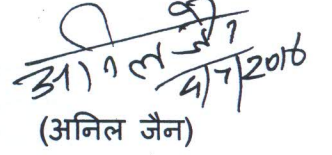 अनिल जैन
4/7/2016
(अनिल जैन)